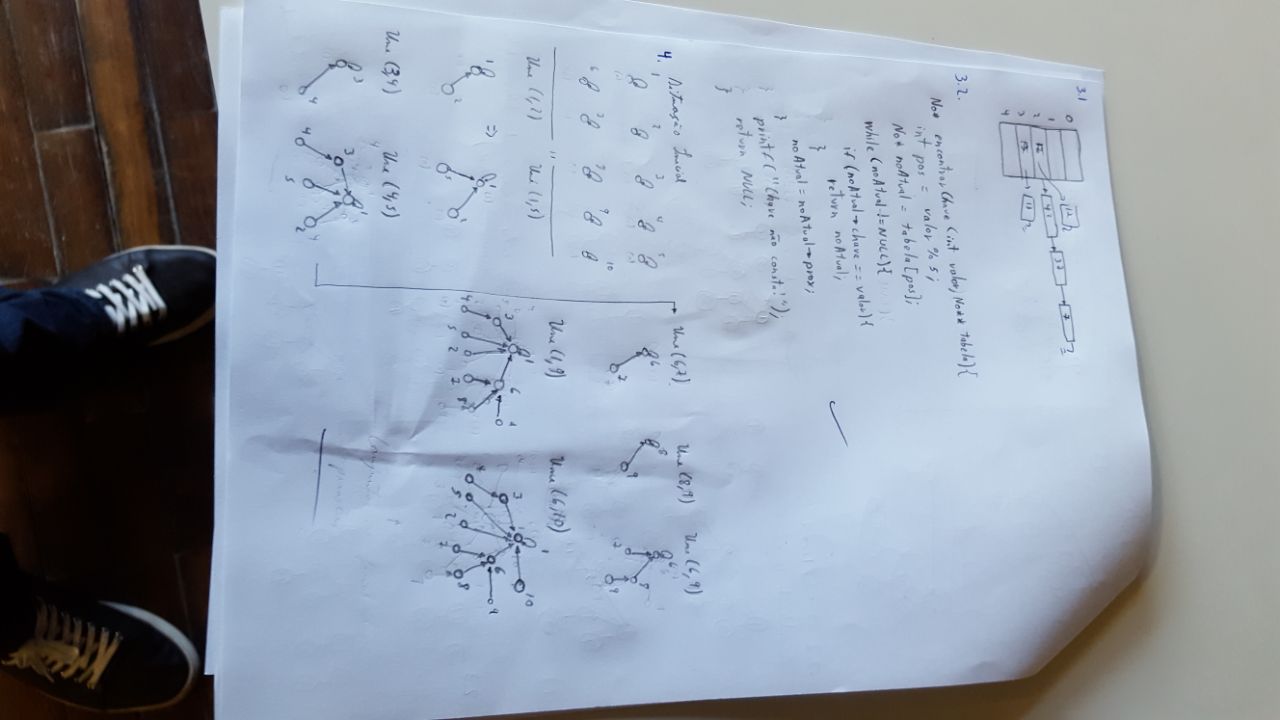 3.1
0
1
2
3
4
12
37
7
3.2.
No* encontrarChave (int valor, No** tabela){
int pos = valor % 5;
No* noAtual = tabela[pos];
while (noAtual != NULL){
if (noAtual→chave == valor){
return noAtual;
}
noAtual = noAtual→prox;
}
printf("Chave não consta!");
return NULL;
}
4. Situação Inicial
1 2 3 4 5
6 10
Une (1,2) Une (1,5)
1 2 ⇒ 1 5 2
Une (3,4) Une (4,5)
3 4
3 1 4 5 2
Une (6,7) Une (8,9) Une (6,9)
6 7
8 9
6 7 8 9
Une (1,9) Une (6,10)
3 1 6 9 4 5 2 7 8
1 10 3 6 9 4 5 2 7 8